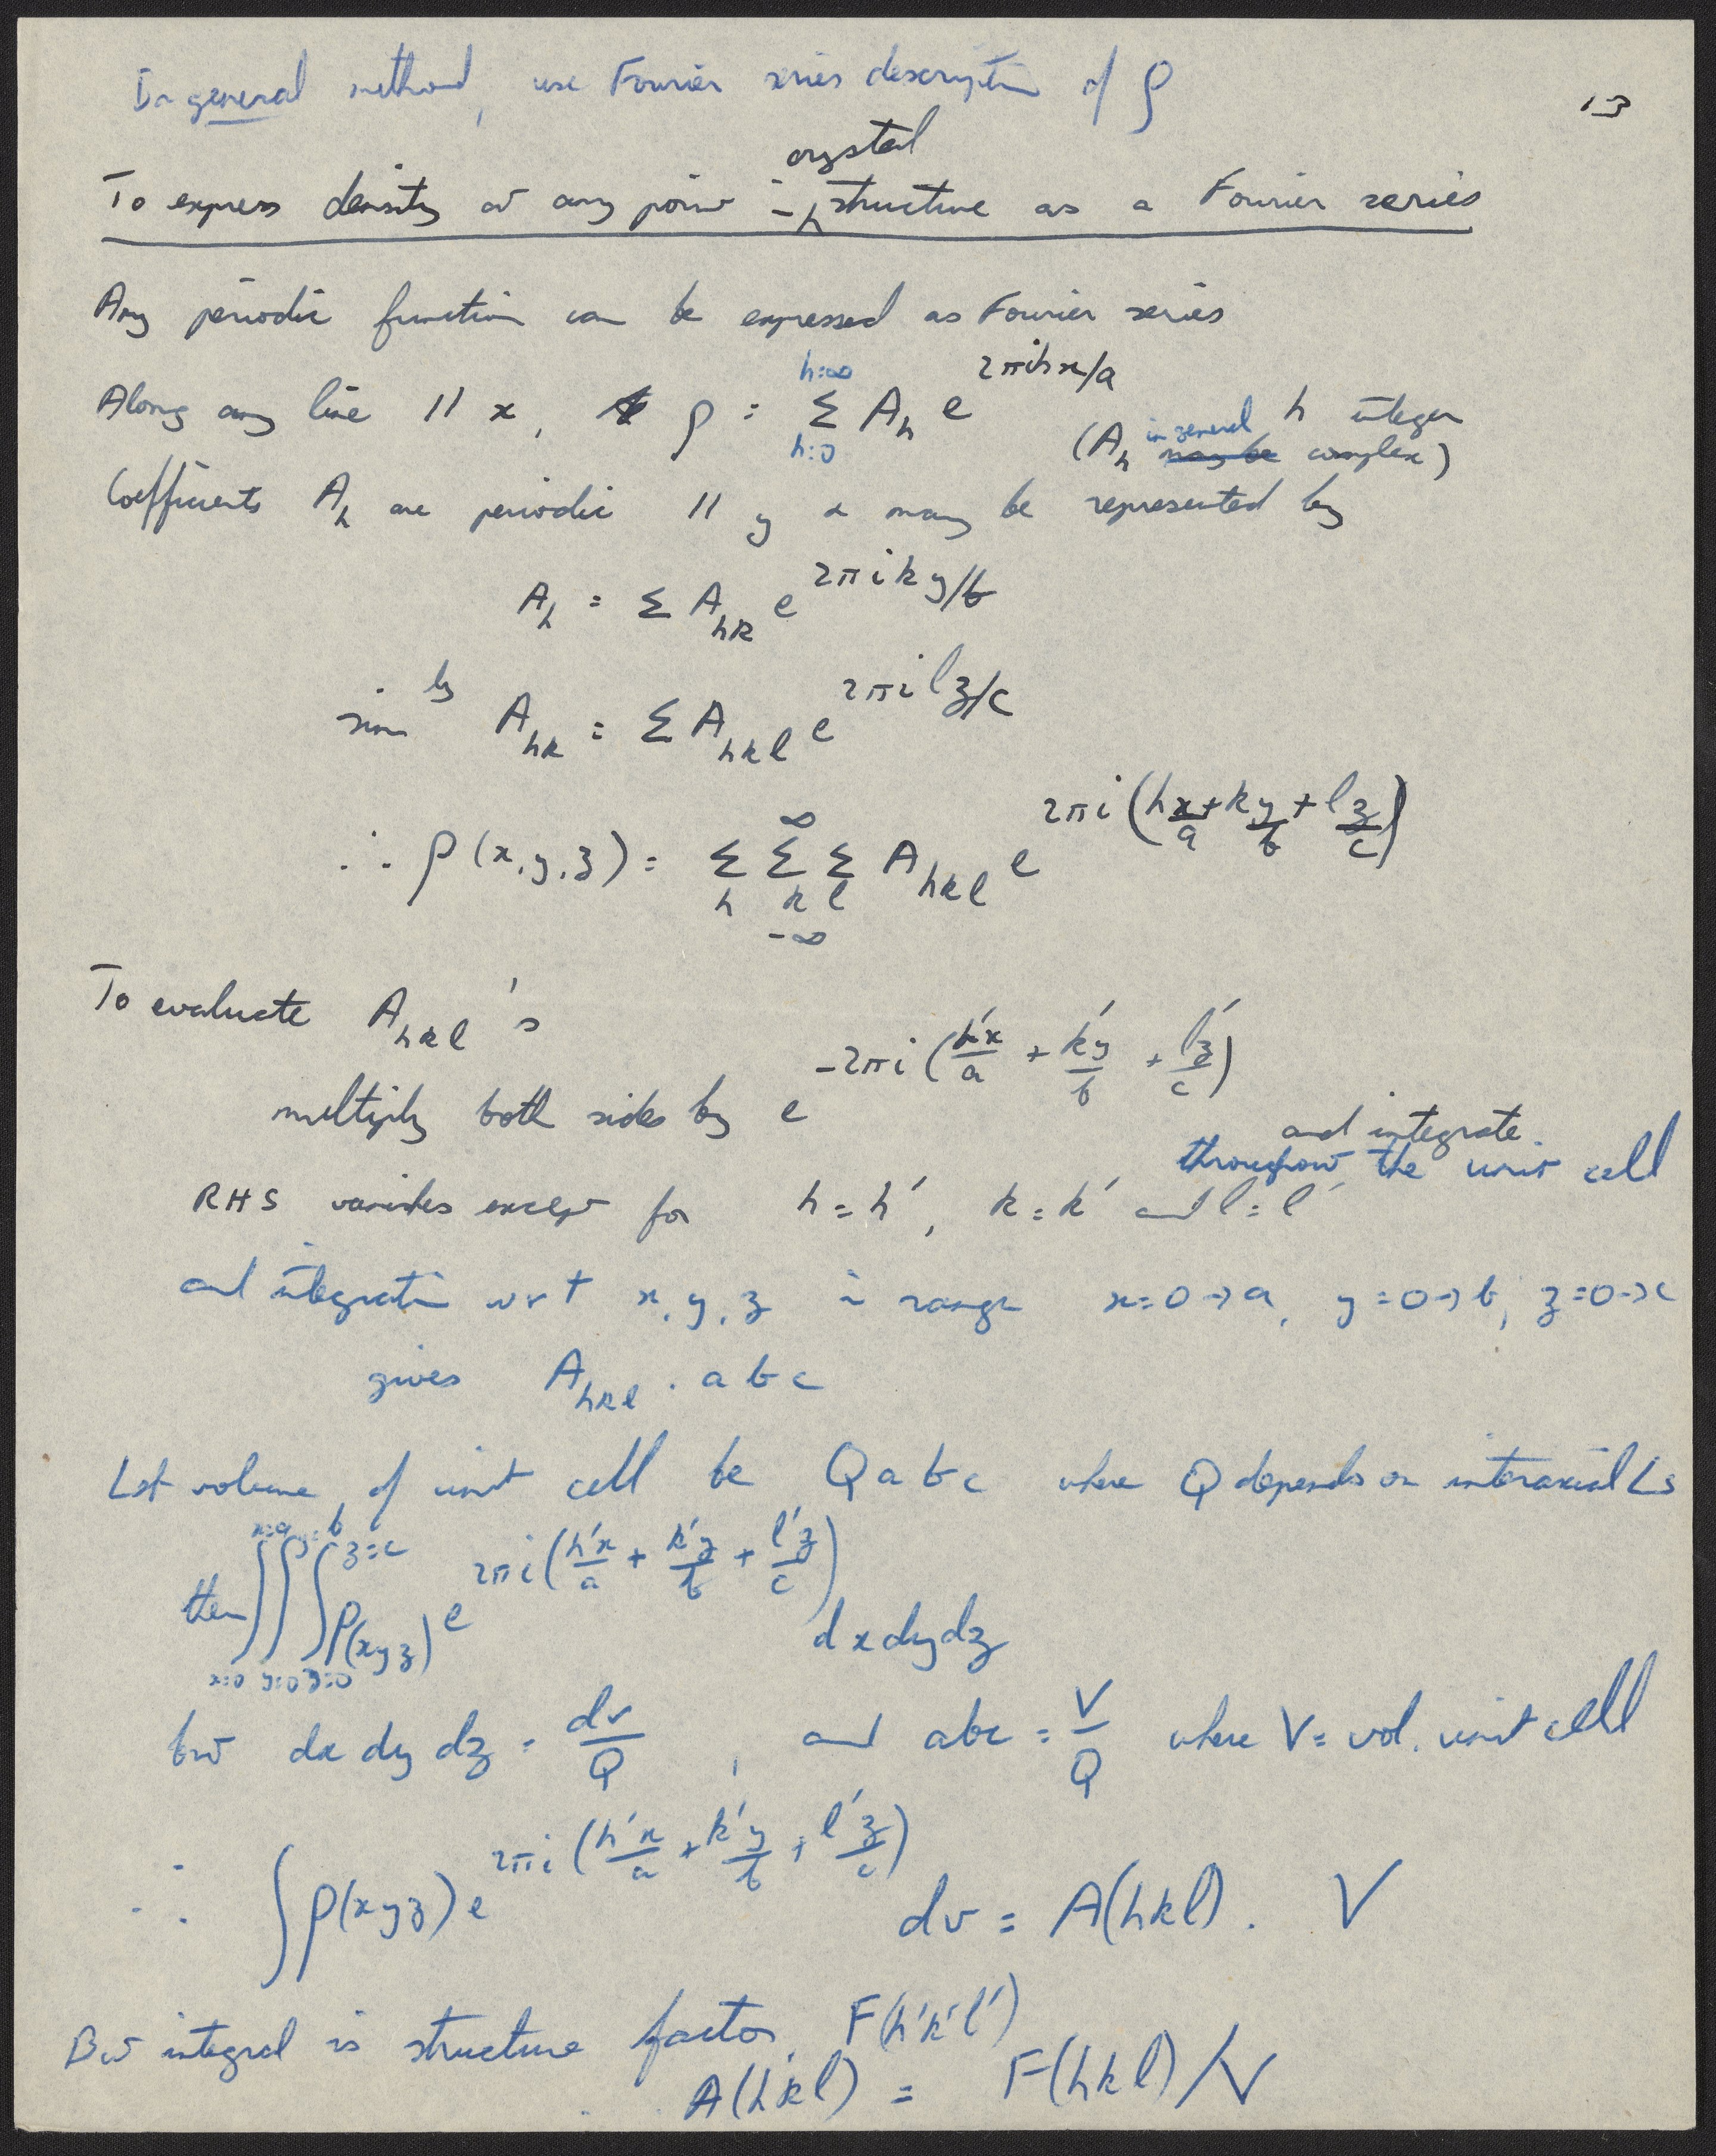 In general method, use Fourier series description of ρ
13
To express density at any point in crystal structure as a Fourier series
Any periodic function can be expressed as Fourier series
Along any line // x, ρ = Σ_{h=0}^{h=∞} A_h e^{2πihx/a} h integer
(A_h in general may be complex)
Coefficients A_h are periodic // y & may be represented by
A_h = Σ A_{hk} e^{2πiky/b}
sim^{ly} A_{hk} = Σ A_{hkl} e^{2πilz/c}
∴ ρ(x,y,z) = Σ_h Σ_k Σ_l _{-∞}^{∞} A_{hkl} e^{2πi(hx/a + ky/b + lz/c)}
To evaluate A_{hkl}'s
multiply both sides by e^{-2πi(h'x/a + k'y/b + l'z/c)}
and integrate.
throughout the unit cell
RHS vanishes except for h = h', k = k' and l = l'
and integration wrt x,y,z in range x=0→a, y=0→b, z=0→c
gives A_{hkl} . abc
Let volume of unit cell be Qabc where Q depends on interaxial ∠s
then ∫_{x=0}^{x=a} ∫_{y=0}^{y=b} ∫_{z=0}^{z=c} ρ(xyz) e^{2πi(h'x/a + k'y/b + l'z/c)} dxdydz
but dx dy dz = dv/Q, and abc = V/Q where V = vol. unit cell
∴ ∫ρ(xyz) e^{2πi(h'x/a + k'y/b + l'z/c)} dv = A(hkl). V
But integral is structure factor, F(h'k'l')
A(hkl) = F(hkl)/V